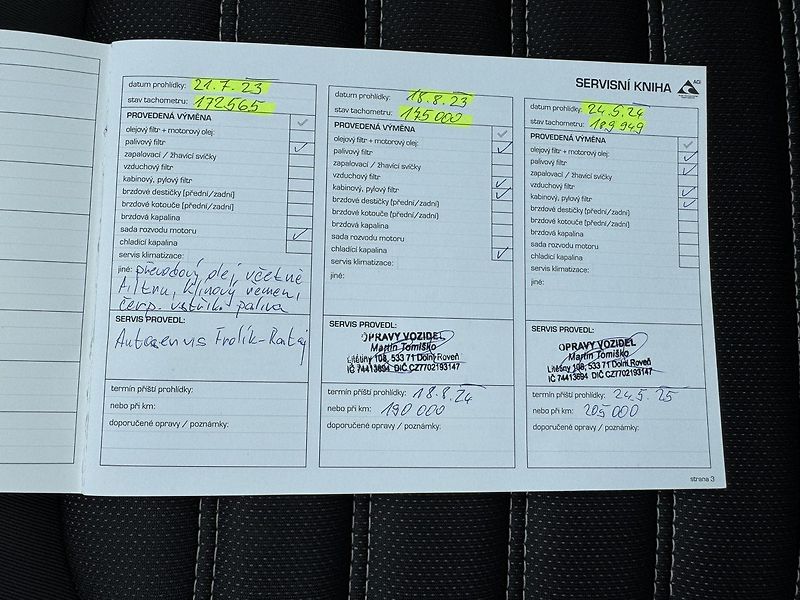 SERVISNÍ KNIHA
ACI
datum prohlídky: 21.7.23
stav tachometru: 172565
PROVEDENÁ VÝMĚNA
olejový filtr + motorový olej:
palivový filtr
zapalovací / žhavící svíčky
vzduchový filtr
kabinový, pylový filtr
brzdové destičky (přední/zadní)
brzdové kotouče (přední/zadní)
brzdová kapalina
sada rozvodu motoru
chladící kapalina
servis klimatizace:
jiné: převodový olej, včetně
filtru, klínový řemen,
čerp. vstřik. paliva
SERVIS PROVEDL:
Autoservis Frolík-Rataj
termín příští prohlídky:
nebo při km:
doporučené opravy / poznámky:
datum prohlídky: 18.8.23
stav tachometru: 175000
PROVEDENÁ VÝMĚNA
olejový filtr + motorový olej:
palivový filtr
zapalovací / žhavící svíčky
vzduchový filtr
kabinový, pylový filtr
brzdové destičky (přední/zadní)
brzdové kotouče (přední/zadní)
brzdová kapalina
sada rozvodu motoru
chladící kapalina
servis klimatizace:
jiné:
SERVIS PROVEDL:
OPRAVY VOZIDEL
Martin Tomiško
Litětiny 108, 533 71 Dolní Roveň
IČ 74413694 DIČ CZ7702193147
termín příští prohlídky: 18.8.24
nebo při km: 190 000
doporučené opravy / poznámky:
datum prohlídky: 24.5.24
stav tachometru: 189949
PROVEDENÁ VÝMĚNA
olejový filtr + motorový olej:
palivový filtr
zapalovací / žhavící svíčky
vzduchový filtr
kabinový, pylový filtr
brzdové destičky (přední/zadní)
brzdové kotouče (přední/zadní)
brzdová kapalina
sada rozvodu motoru
chladící kapalina
servis klimatizace:
jiné:
SERVIS PROVEDL:
OPRAVY VOZIDEL
Martin Tomiško
Litětiny 108, 533 71 Dolní Roveň
IČ 74413694 DIČ CZ7702193147
termín příští prohlídky: 24.5.25
nebo při km: 205000
doporučené opravy / poznámky:
strana 3